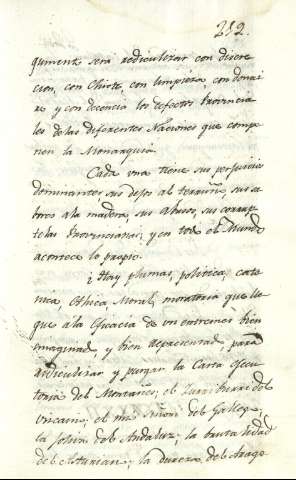 212.
gument será rediculizar con discre
cion, con Chiste, con limpieza, con donai
re y con decencia los defectos Provincia
les de las diferentes Naciones que compo
nen la Monarquia.
Cada una tiene sus perjuicios
dominantes sus dejos al terruño, sus sa
bores a la madera, sus abusos, sus corrup
telas Provincianas; y en todo el Mundo
acontece lo propio.
¿Hay pluma, politica, cato
nica, Ethica, Moral, moratoria que lle
gue á la eficacia de un entremes bien
imaginado, y bien representado, para
rediculizar y purgar la Carta Execu
toria del Montañes; el del
Vizcaino, el del Gallego,
la del Andaluz; la bruta
del Asturiano; la dureza del Arago